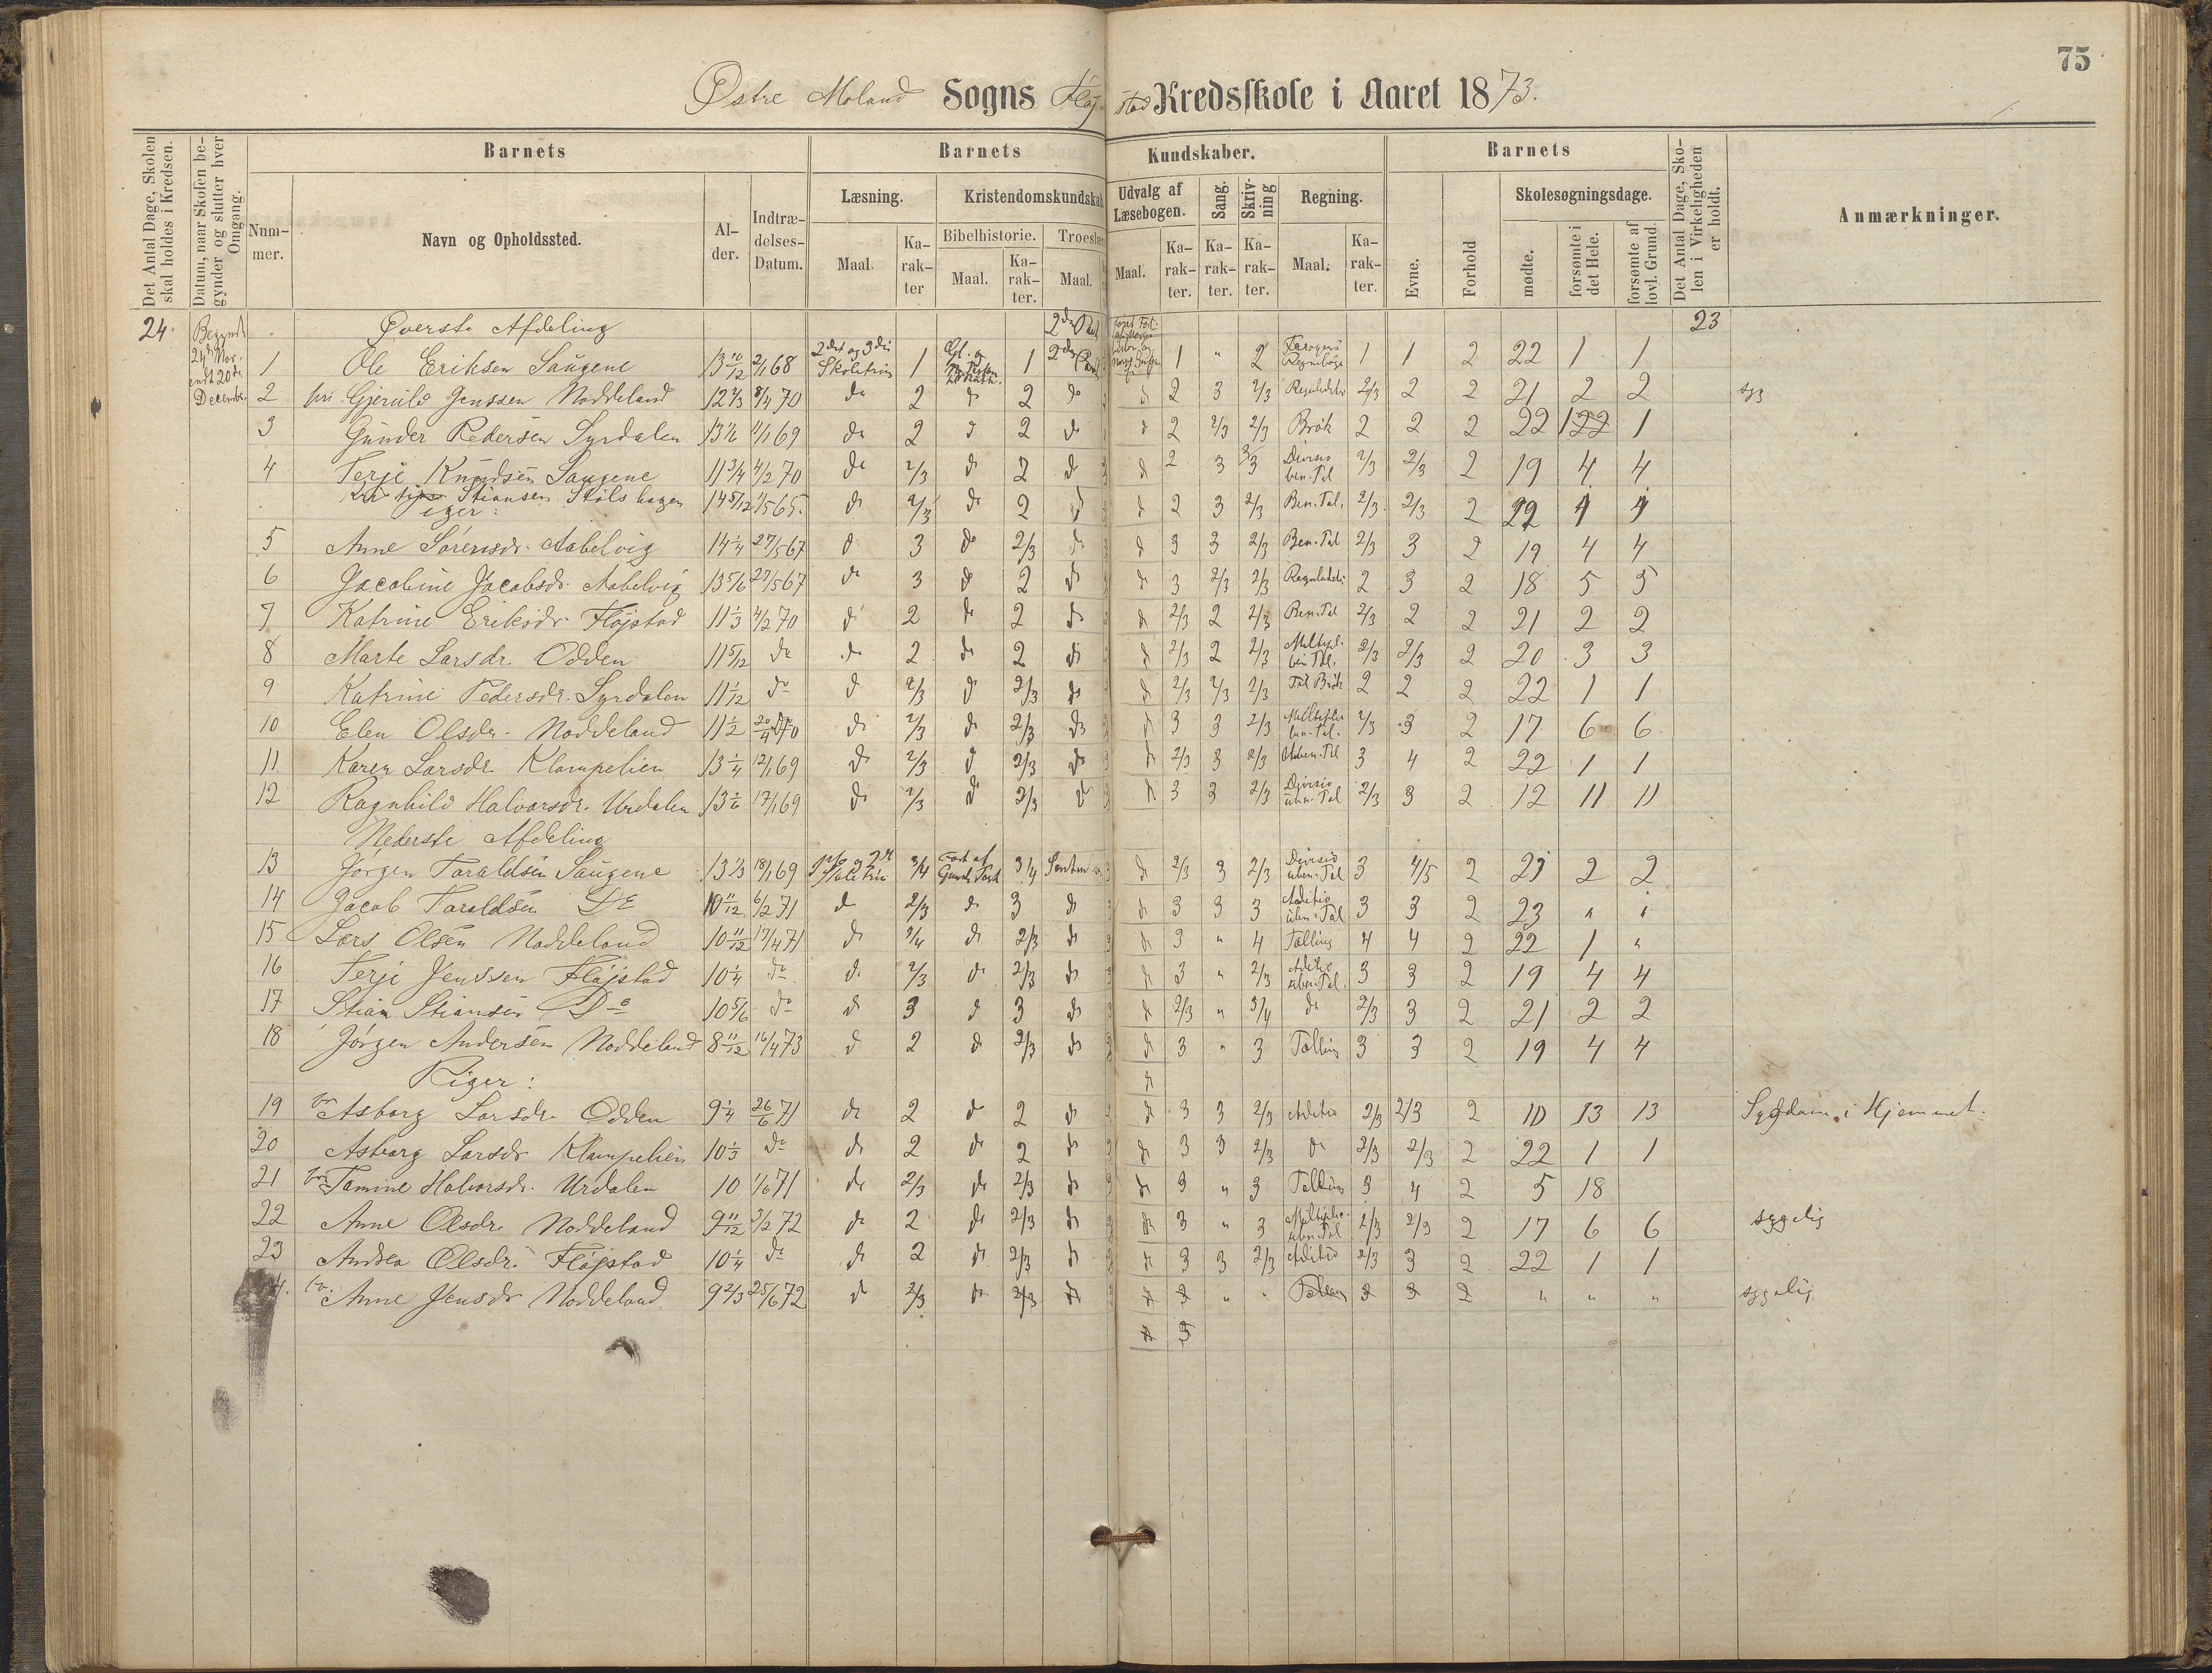 75
Østre Moland Sogns Fløjstad Kredsskole i Aaret 1873.
Det Antal Dage, Skolen skal holdes i Kredsen.
Datum, naar Skolen begynder og slutter hver Omgang.
Barnets
Nummer.
Navn og Opholdssted.
Alder.
Indtrædelses-Datum.
Barnets Kundskaber.
Læsning.
Maal.
Karakter
Kristendomskundskab
Bibelhistorie.
Maal.
Karakter.
Troeslære
Maal.
Udvalg af Læsebogen.
Maal.
Karakter.
Sang.
Karakter.
Skrivning
Karakter.
Regning.
Maal.
Karakter.
Barnets
Evne.
Forhold
Skolesøgningsdage.
mødte.
forsømte i det Hele.
forsømte af lovl. Grund.
Det Antal Dage, Skolen i Virkeligheden er holdt.
Anmærkninger.
24. Begyndt Øverste Afdeling 23
24de Nov. endt 20de December
1 Ole Eriksen Saugene 13 10/12 2/1 68 2det og 3die Skoletrin 1 Gl. og 1 2den Part 1 " 2 Regnebog 1 1 2 22 1 1
2 Gjeruld Jenssen Noddeland 12 2/3 8/4 70 do 2 do 2 do do 2 3 2/3 Reguladetri 2/3 2 2 21 2 2 syg
3 Gunder Pedersen Syrdalen 13 1/6 11/1 69 do 2 do 2 do do 2 2/3 2/3 Brøk 2 2 2 22 1 1
4 Terje Knudsen Saugene 11 3/4 4/2 70 do 2/3 do 2 do do 2 3 3 Divisio ben. Tal 2/3 2/3 2 19 4 4
Stiansen Stølshagen 14 5/12 1/5 65. do 2/3 do 2 do do 2 3 2/3 Ben. Tal. 2/3 2/3 2
eger:
5 Anne Sørensdr. Aabelvig 14 1/4 27/5 67 do 3 do 2/3 do do 3 3 2/3 Ben. Tal 2/3 3 2 19 4 4
6 Jacobine Jacobsdr. Aabelvig 13 5/6 27/5 67 do 3 do 2 do do 3 2/3 2/3 Reguladetri 2 3 2 18 5 5
7 Katrine Eriksdr. Fløjstad 11 1/3 4/2 70 do 2 do 2 do do 2/3 2 2/3 Ben. Tal 2/3 2 2 21 2 2
8 Marte Larsdr. Odden 11 5/12 do do 2 do 2 do do 2/3 2 2/3 Multipl. ben. Tal. 2/3 2/3 2 20 3 3
9 Katrine Pedersdr. Syrdalen 11 1/12 do do 2/3 do 2/3 do do 2/3 2/3 2/3 Brøk 2 2 2 22 1 1
10 Elen Olsdr. Noddeland 11 1/2 20/4 70 do 2/3 do 2/3 do do 3 3 2/3 2/3 3 2 17 6 6
11 Karen Larsdr. Klampelien 13 1/4 12/1 69 do 2/3 do 2/3 do do 2/3 3 2/3 Uben. Tal 3 4 2 22 1 1
12 Ragnhild Halvorsdr. Urdalen 13 1/6 17/1 69 do 2/3 do 2/3 do do 3 3 2/3 Divisio uben. Tal 2/3 3 2 12 11 11
Nederste Afdeling
13 Jørgen Taraldsen Saugene 13 1/3 18/1 69 3/4 3/4 do 2/3 3 2/3 Divisio uben. Tal 3 4/5 2 21 2 2
14 Jacob Taraldsen Do 10 11/12 6/2 71 do 2/3 do 3 do do 3 3 3 Aditio uben. Tal 3 3 2 23 " "
15 Lars Olsen Noddeland 10 11/12 17/4 71 do 3/4 do 2/3 do do 3 " 4 Tælling 4 4 2 22 1 "
16 Terje Jenssen Fløjstad 10 1/4 do do 2/3 do 2/3 do do 3 " 2/3 Aditio uben. Tal. 3 3 2 19 4 4
17 Stian Stiansen Do 10 5/6 do do 3 do 3 do do 2/3 " 3/4 do 2/3 3 2 21 2 2
18 Jørgen Andersen Noddeland 8 11/12 16/4 73 do 2 do 2/3 do do 3 " 3 Tælling 3 3 2 19 4 4
Piger: do
19 Asborg Larsdr. Odden 9 1/4 26/6 71 do 2 do 2 do do 3 3 2/3 Aditio 2/3 2/3 2 10 13 13 Sygdom i Hjemmet.
20 Asborg Larsdr. Klampelien 10 1/3 do do 2 do 2 do do 3 3 2/3 do 2/3 2/3 2 22 1 1
21 Tomine Halvorsdr. Urdalen 10 1/6 71 do 2/3 do 2/3 do do 3 " 3 Tælling 3 4 2 5 18
22 Anne Olsdr. Noddeland 9 11/12 3/2 72 do 2 do 2/3 do do 3 " 3 2/3 2/3 2 17 6 6 sygelig
23 Andrea Olsdr. Fløjstad 10 1/4 do do 2 do 2/3 do do 3 3 2/3 Aditio 2/3 3 2 22 1 1
Anne Jensdr. Noddeland 9 2/3 25/6 72 do 2/3 do 2/3 do do 3 " " Tælling 3 3 2 " " " sygelig